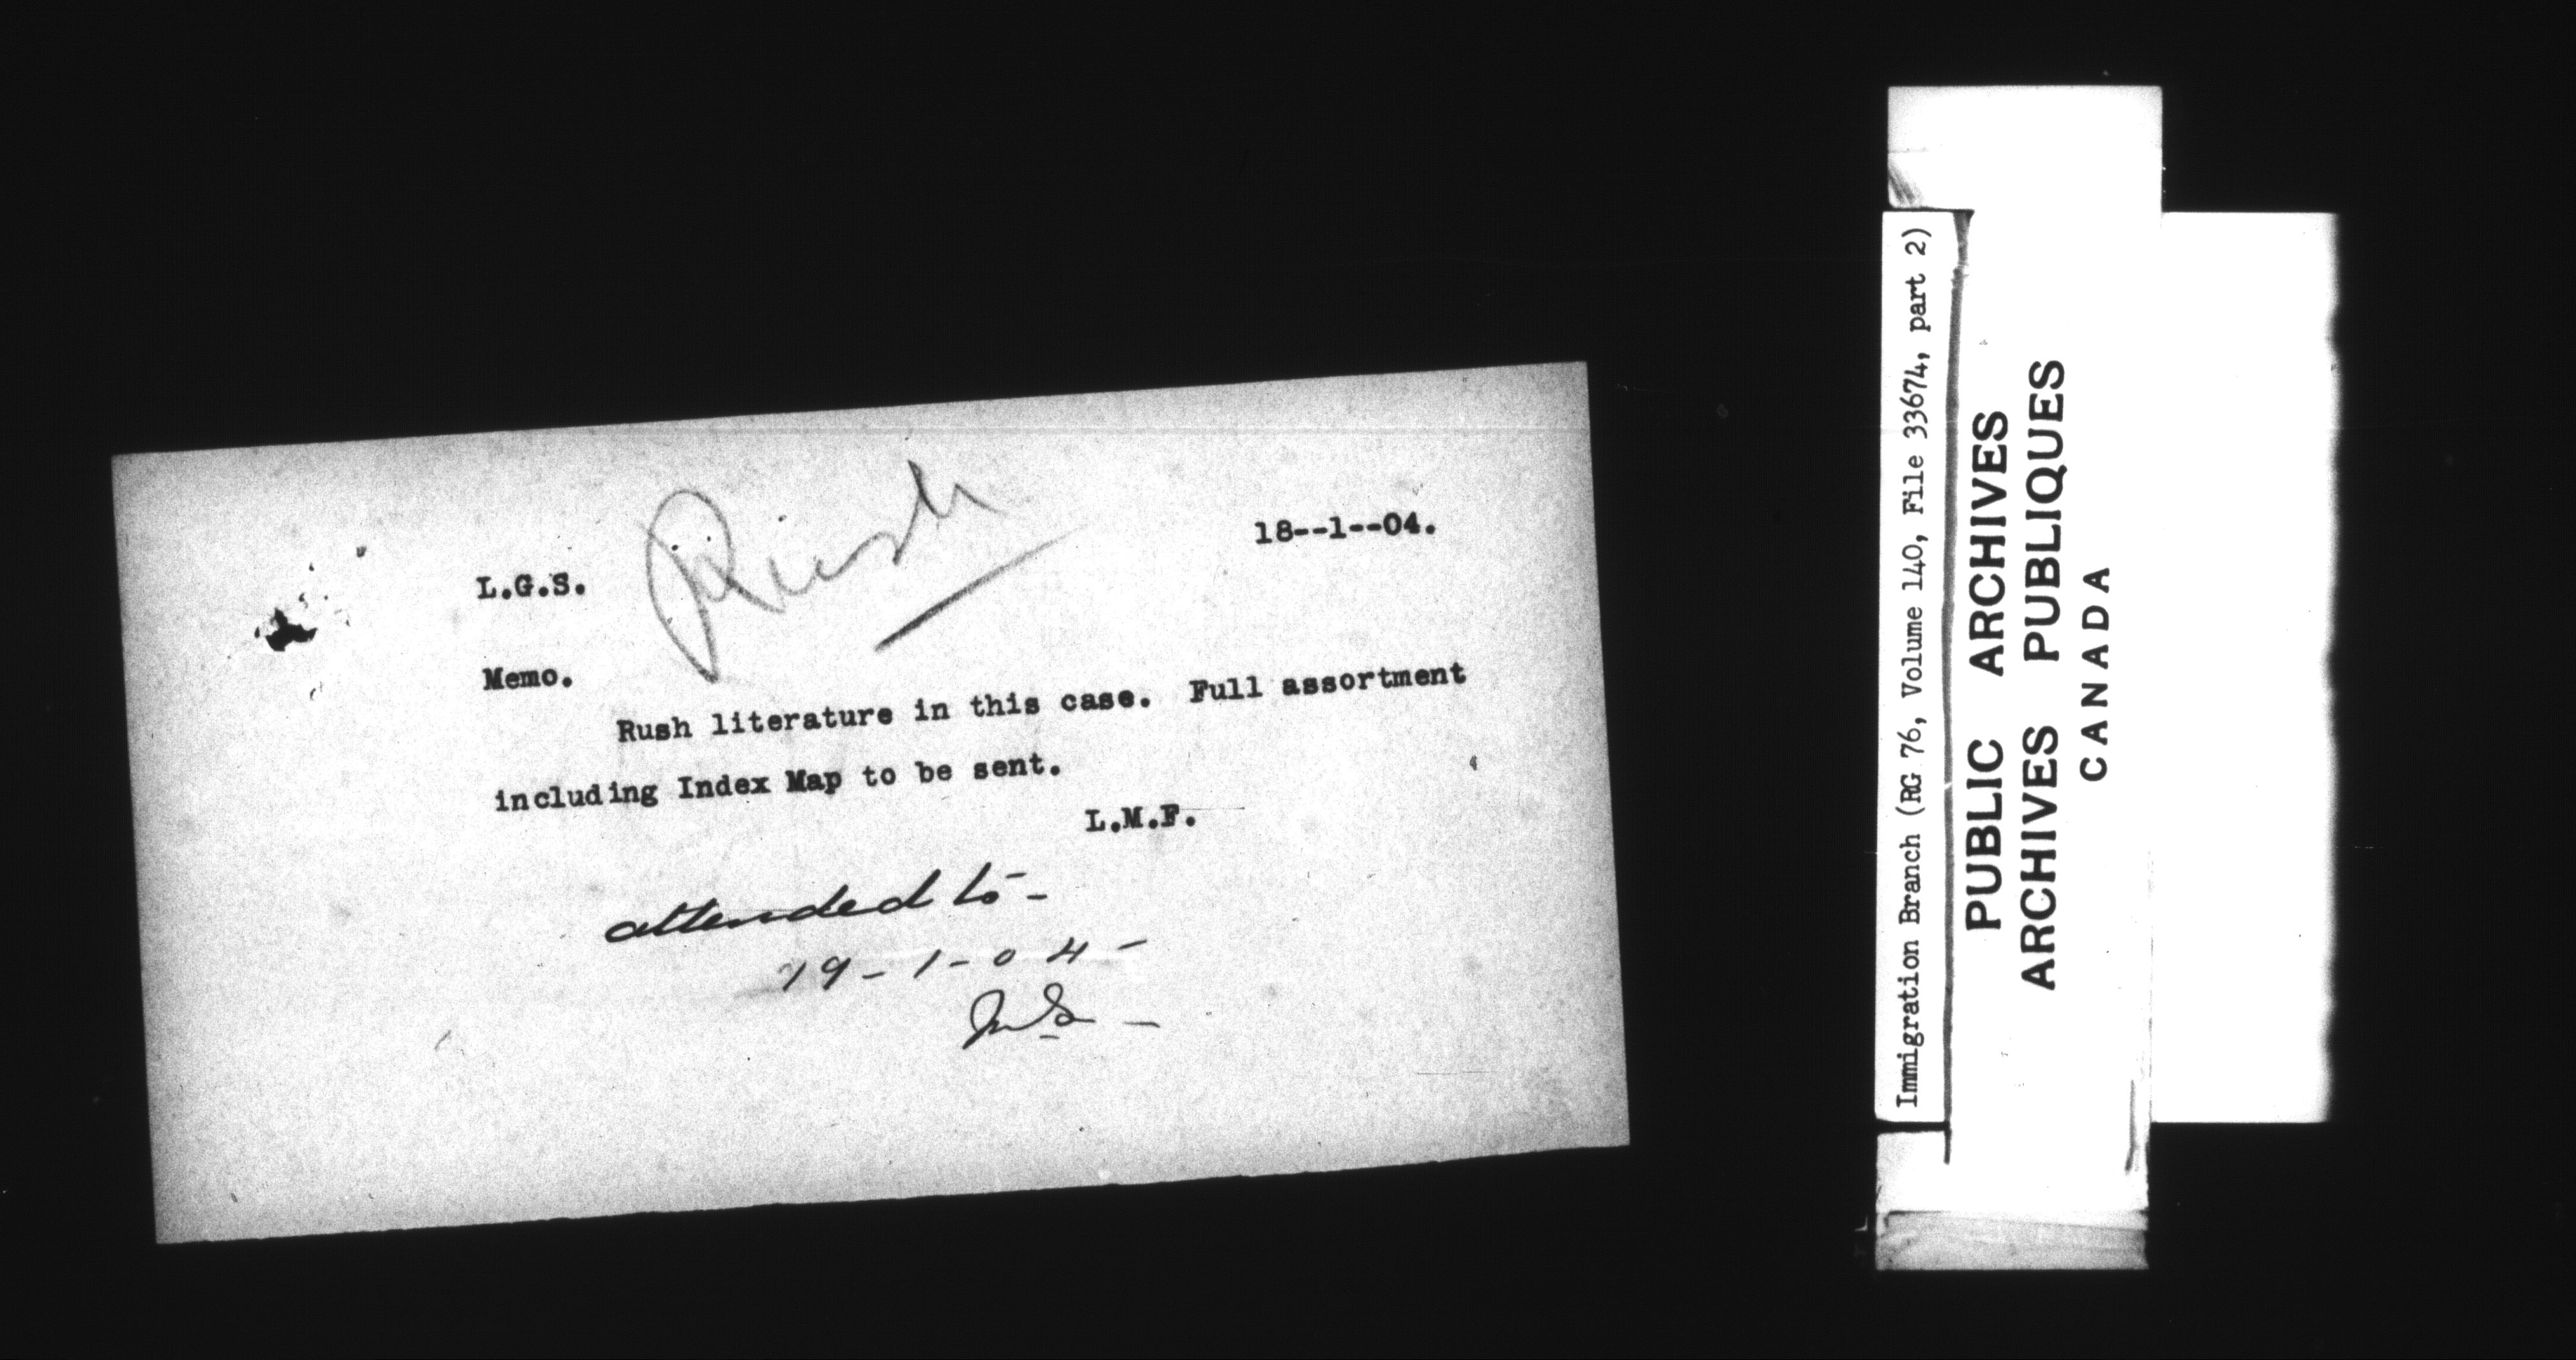 Rush
18--1--04.
L.G.S.
Memo.
Rush literature in this case. Full assortment
including Index Map to be sent.
L.M.F.
attended to -
19-1-04-
Immigration Branch (RG 76, Volume 140, File 33674, part 2)
PUBLIC ARCHIVES
ARCHIVES PUBLIQUES
CANADA